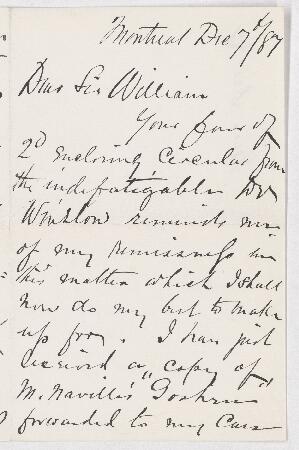 Montreal Dec 7th/87
Dear Sir William
Your favor of
2d enclosing Circular from
the indefatigable Dr
Winslow reminds me
of my remissness in
this matter which I shall
now do my best to make
up for. I have just
received a "copy of
M. Naville's Goshen"
forwarded to my care